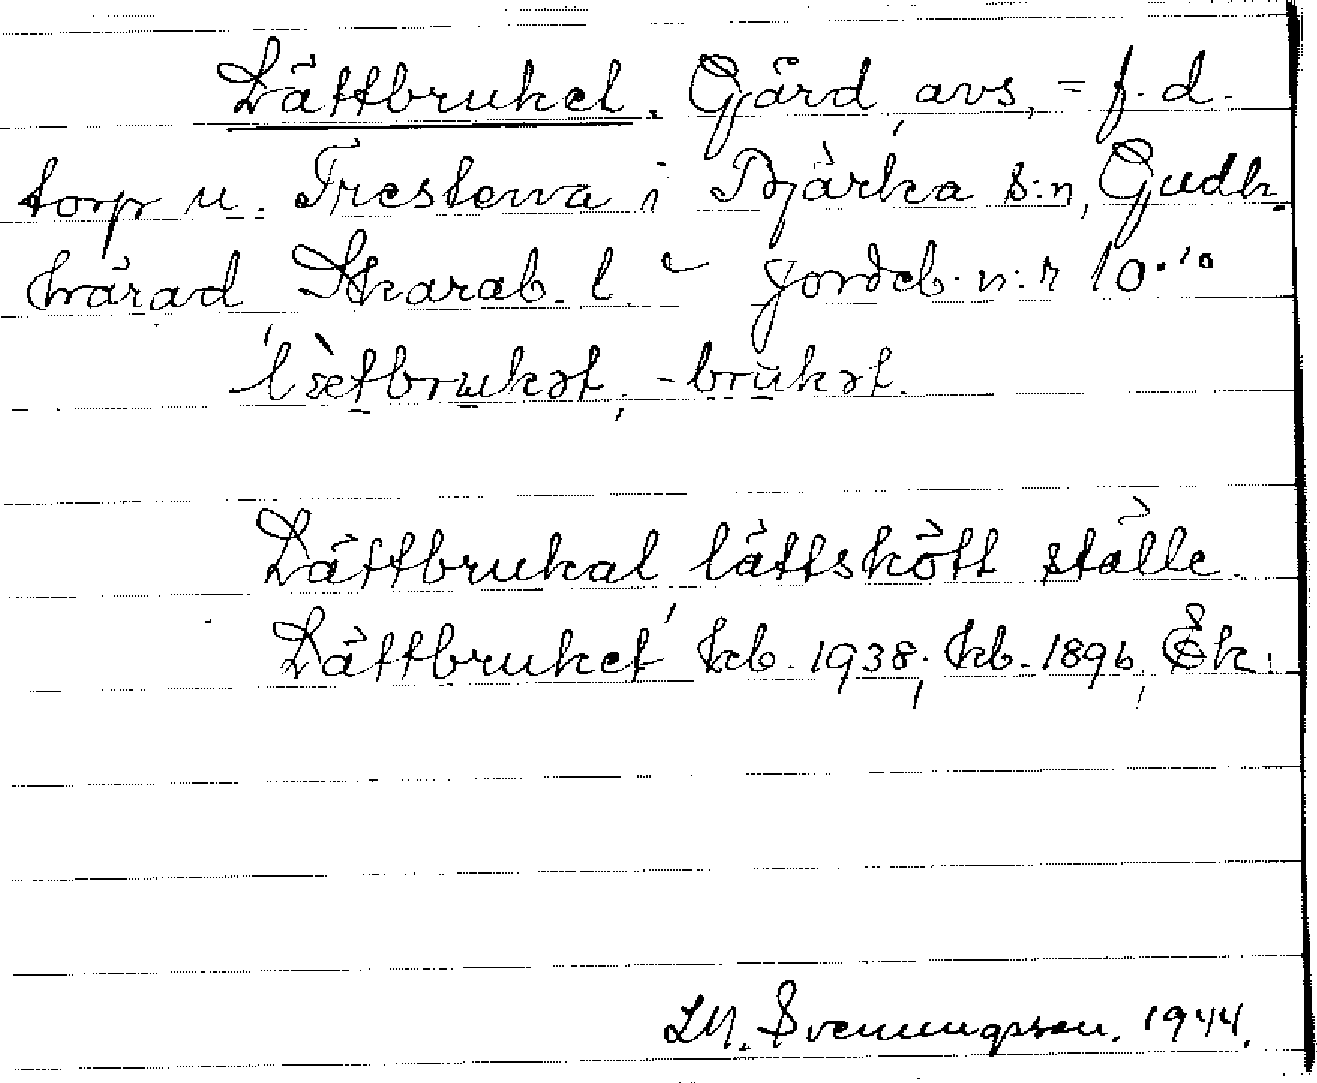 Lättbruket. Gård, avs, = f.d.
torp u. Trestena i Bjärka s:n, Gudh.
härad Skarab. l. jordeb. n:r 10.10
'lsètbrukət, -brukət.
Lättbrukat lättskött ställe.
Lättbruket kb. 1938, kb. 1896, Ek.
L.M. Svenungsson. 1944.